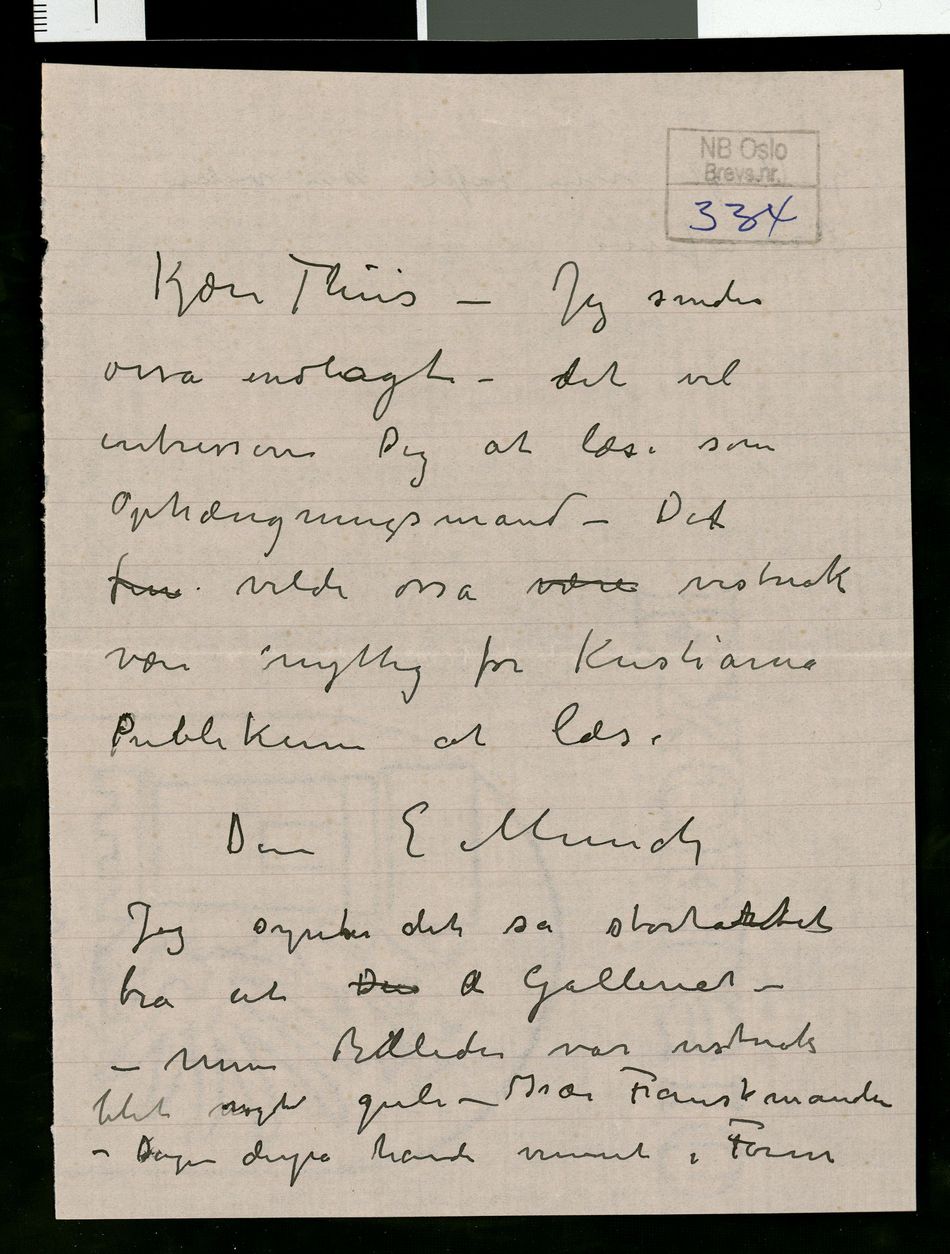 NB Oslo
Brevs.nr.
334
Kjære Thiis – Jeg sender
ossa indlagte – det vil
intressere Dig at læse som
Ophængningsmand – Det
vilde ossa være vistnok
være nyttig for Kristiania
Publikum at læse
Din E Munch
Jeg synes det sa stortartet
bra ut Den i Galleriet –
– mine Billeder var vistnok
blet noget gule – Især Franskmanden
– Dagen derpa havde vundet i Farve